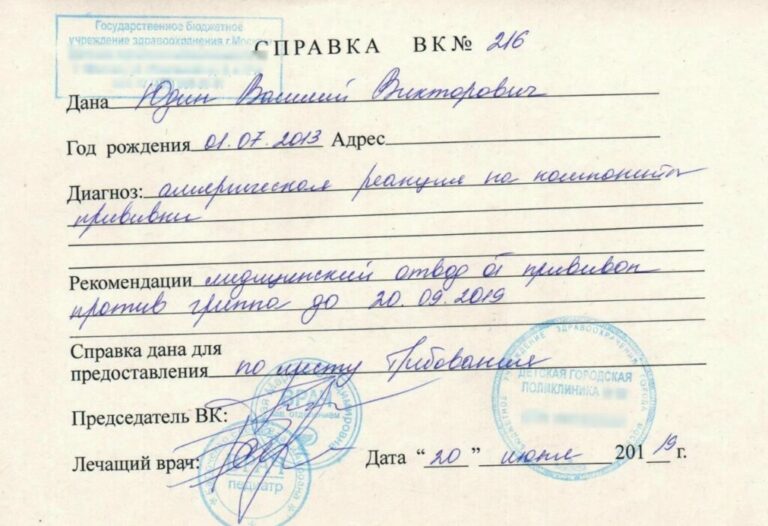 Государственное бюджетное
учреждение здравоохранения г.Москвы
СПРАВКА ВК№ 216
Дана Юдин Василий Викторович
Год рождения 01.07.2013 Адрес
Диагноз: аллергическая реакция на компоненты
прививки
Рекомендации медицинский отвод от прививок
против гриппа до 20.09.2019
Справка дана для
предоставления по месту Требования
ДЕТСКАЯ ГОРОДСКАЯ
ПОЛИКЛИНИКА
ВРАЧ
Председатель ВК:
Лечащий врач:
педиатр
Дата “20” июля 2019 г.